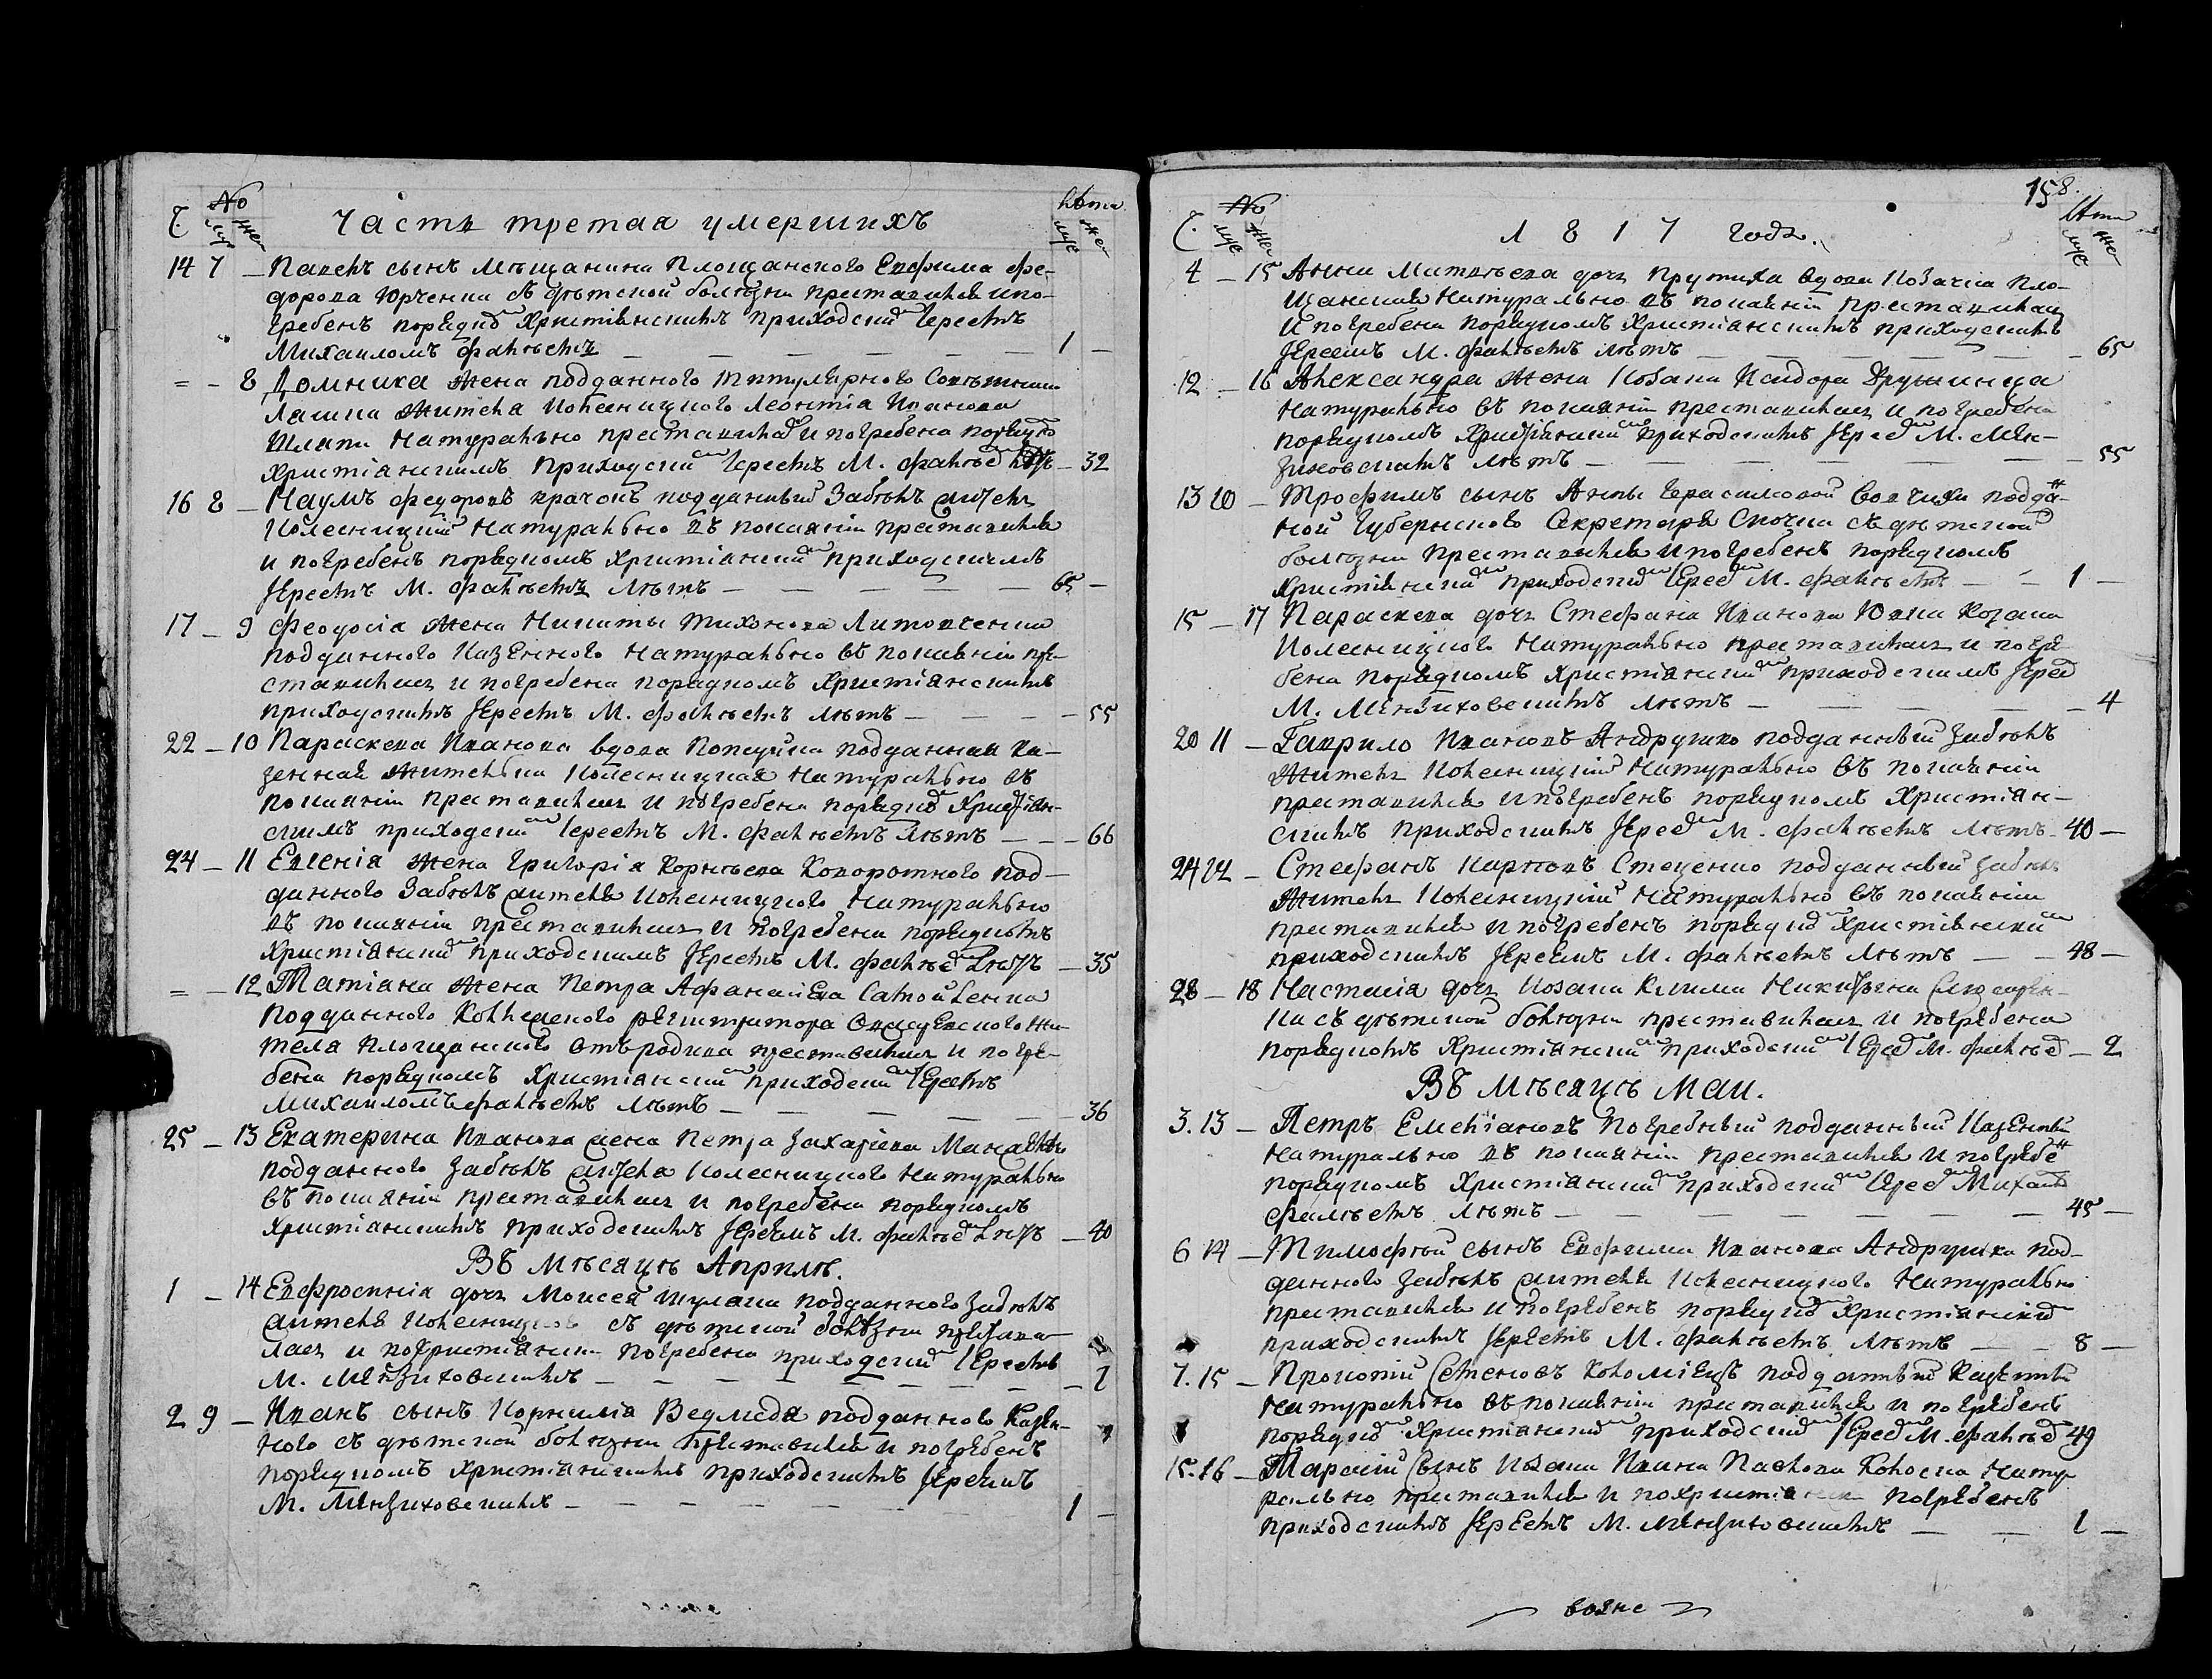 №
Ч. муж жен
Часть третая умершихъ
Лѣта
муж жен
14 7 – Павелъ сынъ мѣщанина Площанского Евфима Фе-
дорова Юрченка съ дѣтской болѣзни преставился и по-
гребенъ порядко Христіанскимъ приходски Іереемъ
Михаиломъ Фалѣемъ – – – – – – 1 –
= – 8 Домника жена подданного Титулярного Совѣтника
жителя Колесницкого Леонтія Иванова
натурально преставилас и погребена порядко
Христіанскимъ приходски Іереемъ М. Фалѣе Лѣтъ – 32
16 8 – Наумъ Федоровъ подданный Забѣлъ житель
Колесницкий натурально въ покаяніи преставился
и погребенъ порядкомъ Христіански приходскимъ
Іереемъ М. Фалѣемъ лѣтъ – – – – – 65 –
17 – 9 Феодосіа жена Никиты Тихонова Литовченка
подданного Казенного натурально въ покаяніи пре-
ставилась и погребена порядкомъ Христіанскимъ
приходскимъ Іереемъ М. Фалѣемъ лѣтъ – – – – 55
22 – 10 Параскева Иванова вдова подданная ка-
зенная жителька Колесницкая натурально въ
покаяніи преставилась и погребена порядко Христіан-
скимъ приходски Іереемъ М. Фалѣемъ лѣтъ – – – 66
24 – 11 Евгеніа жена Григорія Корнѣева Коворотного под-
данного Забѣлъ жителя Колесницкого натурально
въ покаяніи преставилась и погребена порядкомъ
Христіански приходскимъ Іереемъ М. Фалѣе Лѣтъ – 35
= – 12 Татіана жена Петра Афанасіева
подданного Коллежского регистратора жи-
теля Площанского отъ родива преставилась и погре-
бена порядкомъ Христіански приходски Іереемъ
Михаиломъ Фалѣемъ лѣтъ – – – – – 36
25 – 13 Екатерина Иванова жена Петра Захаріева
подданного Забѣлъ жителя Колесницкого натурально
въ покаяніи преставилась и погребена порядкомъ
Христіанскимъ приходскимъ Іереемъ М. Фалѣе Лѣтъ – 40
Въ мѣсяцѣ Априлѣ.
1 – 14 Евфросиніа дочь Моисея Шулати подданного Забѣлъ
жителя Колесницкого съ дѣтской болѣзни престави-
лась и похристіански погребена приходски Іереемъ
М. Мензиховскимъ – – – – – – – –
2 9 – Иванъ сынъ Корнилія Ведмедя подданного Казен-
ного съ дѣтской болѣзни преставился и погребенъ
порядкомъ Христіанскимъ приходскимъ Іереемъ
М. Мензиховскимъ – – – – – 1 –
158.
№
Ч. муж жен
1 8 1 7 года.
Лѣта
муж жен
4 – 15 Анна Матвѣева дочь Прутиха вдова Козачка Пло-
щанская натурально въ покаяніи преставилась
и погребена порядкомъ Христіанскимъ приходскимъ
Іереемъ М. Фалѣемъ лѣтъ – – – – – 65
12 – 16 Александра жена Козака Исидора Дружинца
натурально въ покаяніи преставилась и погребена
порядкомъ Христіански приходскимъ Іерее М. Мен-
зиховскимъ лѣтъ – – – – – 55
13 10 – Трофимъ сынъ Анны Герасимовой Вовчихи подда-
ной Губернского Секретаря Сночка съ дѣтской
болѣзни преставился и погребенъ порядкомъ
Христіански приходски Іерее М. Фалѣемъ – – 1 –
15 – 17 Параскева дочь Стефана Иванова Юхна Козака
Колесницкого натурально преставилась и погре-
бена порядкомъ Христіански приходскимъ Іерее
М. Мензиховскимъ лѣтъ – – – – – 4
20 11 – Гаврило Ивановъ Андрушко подданный Забѣлъ
житель Колесницкій натурально въ покаяніи
преставился и погребенъ порядкомъ Христіан-
скимъ приходскимъ Іерее М. Фалѣемъ лѣтъ – 40 –
24 12 – Стефанъ Карповъ Стеценко подданный Забѣлъ
житель Колесницкій натурально въ покаяніи
преставился и погребенъ порядко Христіански
приходскимъ Іереемъ М. Фалѣемъ лѣтъ – – 48 –
28 – 18 Настасіа дочь Козака Клима Никитина
ка съ дѣтской болѣзни преставилась и погребена
порядкомъ Христіански приходски Іерее М. Фалѣе – 2
Въ мѣсяцѣ Маи.
3. 13 – Петръ Емеліановъ Погребный подданный Казенный
натурально въ покаяніи преставился и погребе
порядкомъ Христіански приходски Іерее Михаи
Фалѣемъ лѣтъ – – – – – – – 45 –
6 14 – Тимофѣй сынъ Евфима Иванова Андрушка под-
данного Забѣлъ жителя Колесницкого натурально
преставился и погребенъ порядко Христіански
приходскимъ Іереемъ М. Фалѣемъ лѣтъ – – 8 –
7. 15 – Прокопій Семеновъ Коломіецъ подданный Казенный
натурально въ покаяніи преставился и погребенъ
порядко Христіански приходски Іерее М. Фалѣе 49
15. 16 – Тарасій сынъ Козака Ивана Павлова Колоска нату-
рально преставился и похристіански погребенъ
приходскимъ Іереемъ М. Мензиховскимъ – – 1 –